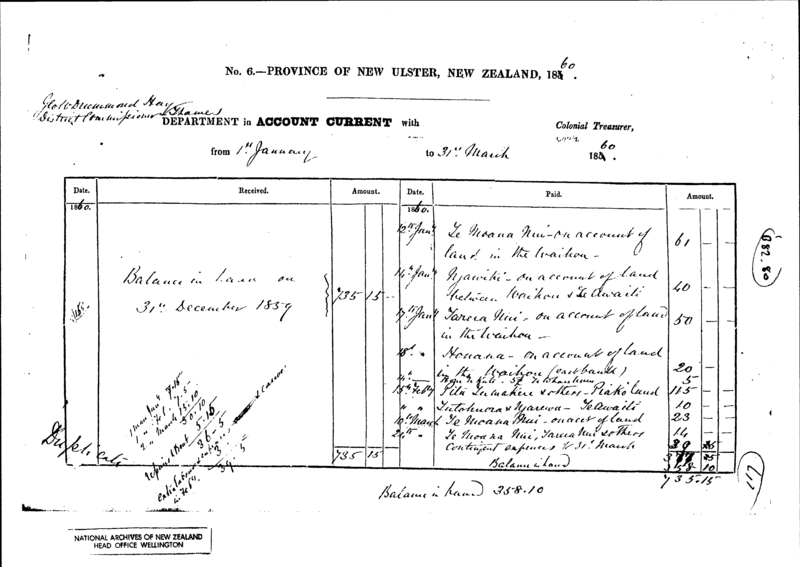 No. 6.—PROVINCE OF NEW ULSTER, NEW ZEALAND, 1860
Geo W Drummond Hay
District Commissioner Thames
DEPARTMENT in ACCOUNT CURRENT with Colonial Treasurer,
from 1st January to 31st March 1860.
Date. Received. Amount. Date. Paid. Amount.
1860 1860.
12th Jany Te Moana Nui - on account of 61 — —
land in the Waihou -
Balance in hand on
31st December 1859 735 15 —
14th Jany on account of land
between Waihou & Te Awaiti 40
17th Jany Tarera Nui, on account of land 50
in the Waihou -
18th " Honana - on account of land
in the Waihou (east bank) 20
5
15th Feby Pita & others - Piako land 115
" " - Te Awaiti 10
10th March Te Moana Nui - on acct of land 23
24th " Te Moana Nui, Tarera Nui & others 14
Contingent expenses to 31st March 39
735 15
Balance in hand 358 10
735.15
Balance in hand 358.10
Duplicate
7.15
7.5
15.10
30.10
repairs Boat 5.15
36.5
3
39.5
in Feby.
D82.80
NATIONAL ARCHIVES OF NEW ZEALAND
HEAD OFFICE WELLINGTON